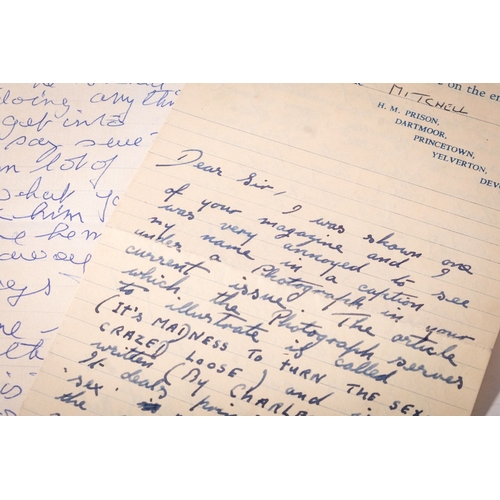 doing anythi
get into
say seve
n lot of
what yo
him
on the en
MITCHELL
H. M. PRISON,
DARTMOOR,
PRINCETOWN,
YELVERTON,
DEV
Dear Sir, I was shown one
of your magazine and I
was very annoyed to see
my name in a caption
under a Photograph in your
current issue. The article
which the Photograph serves
to illustrate is called
(IT'S MADNESS TO TURN THE SEX
CRAZED LOOSE) and i
written (BY CHARLA
It deals prin
'sex
the